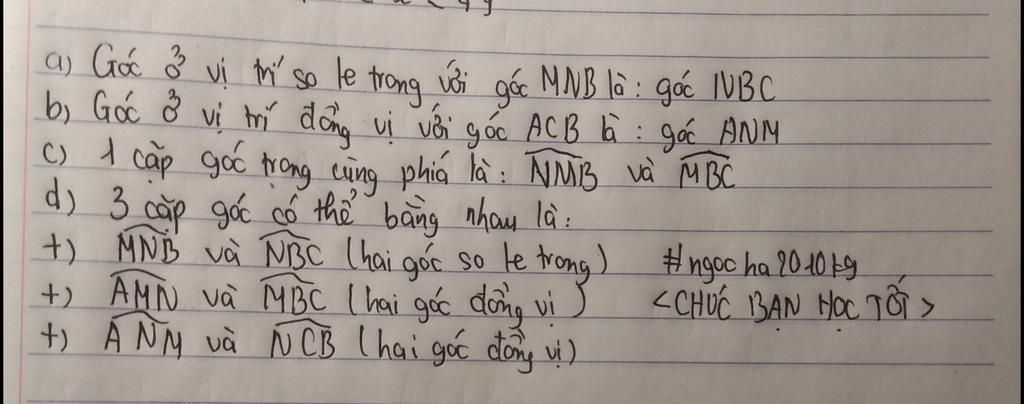 a) Góc ở vị trí so le trong với góc MNB là : góc NBC
b) Góc ở vị trí đồng vị với góc ACB là : góc ANM
c) 1 cặp góc trong cùng phía là : NMB và MBC
d) 3 cặp góc có thể bằng nhau là :
+) MNB và NBC (hai góc so le trong) #ngocha2010kg
+) AMN và MBC (hai góc đồng vị) <CHÚC BẠN HỌC TỐT>
+) ANM và NCB (hai góc đồng vị)